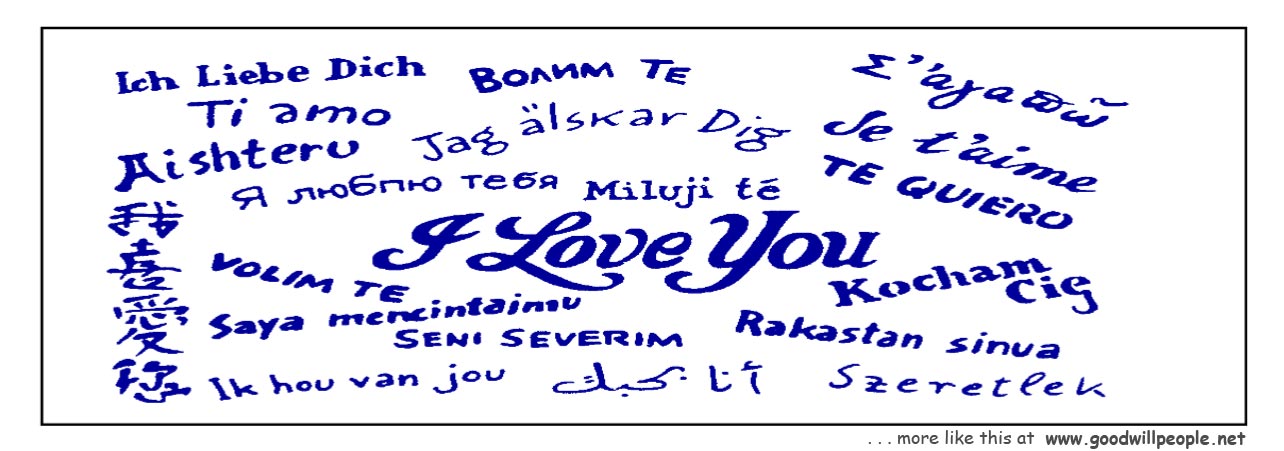 Ich Liebe Dich
Волим те
Σ’ ’αγαπῶ
Ti amo
Jag älskar Dig
Je t'aime
Aishteru
Я люблю тебя
Miluji té
TE QUIERO
我喜愛你
I Love You
VOLIM TE
Kocham
Cię
Saya mencintaimu
SENI SEVERIM
Rakastan sinua
Ik hou van jou
أنا بحبك
Szeretlek
. . . more like this at www.goodwillpeople.net